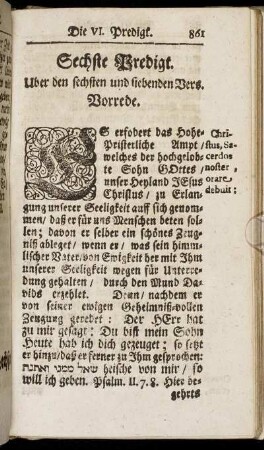 Die VI. Predigt. 861
Sechste Predigt.
Uber den sechsten und siebenden Vers.
Vorrede.
ES erfodert das Hohe-
Priesterliche Ampt /
welches der hochgelob-
te Sohn GOttes /
unser Heyland JEsus
Christus / zu Erlan-
gung unserer Seeligkeit auff sich genom-
men / daß er für uns Menschen beten sol-
len; davon er selber ein schönes Zeug-
niß ableget / wenn er / was sein himm-
lischer Vater / von Ewigkeit her mit Ihm
unserer Seeligkeit wegen für Unterre-
dung gehalten / durch den Mund Da-
vids erzehlet. Denn / nachdem er
von seiner ewigen Geheimniß-vollen
Zeugung geredet: Der HErr hat
zu mir gesagt: Du bist mein Sohn
Heute hab ich dich gezeuget; so setzt
er hinzu / daß er ferner zu Ihm gesprochen:
שאל ממני ואתנה heische von mir / so
will ich geben. Psalm. II. 7. 8. Hier be-
gehrts
Chri-
stus, Sa-
cerdos
noster,
orare
debuit: